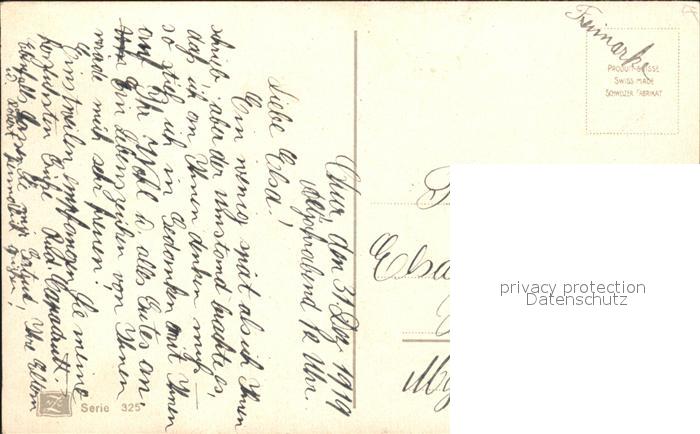 Chur, den 31 Dez 1919
Sylvesterabend 12 Uhr.
Liebe Elsa!
Ein wenig spät als ich Ihnen
schrieb aber der Umstand brachte es,
daß ich an Ihnen denken muß
so stieß ich in Gedanken mit Ihnen
auf Ihr Wohl u. alles Gutes an.
Ein Lebenszeichen von Ihnen
würde mich sehr freuen.
Einstweilen empfangen Sie meine
herzlichsten Grüße Rud. Capadrutt
Ihre Eltern
Freimarke
PRODUIT SUISSE
SWISS MADE
SCHWEIZER FABRIKAT
Elsa
privacy protection
Datenschutz
Serie 325